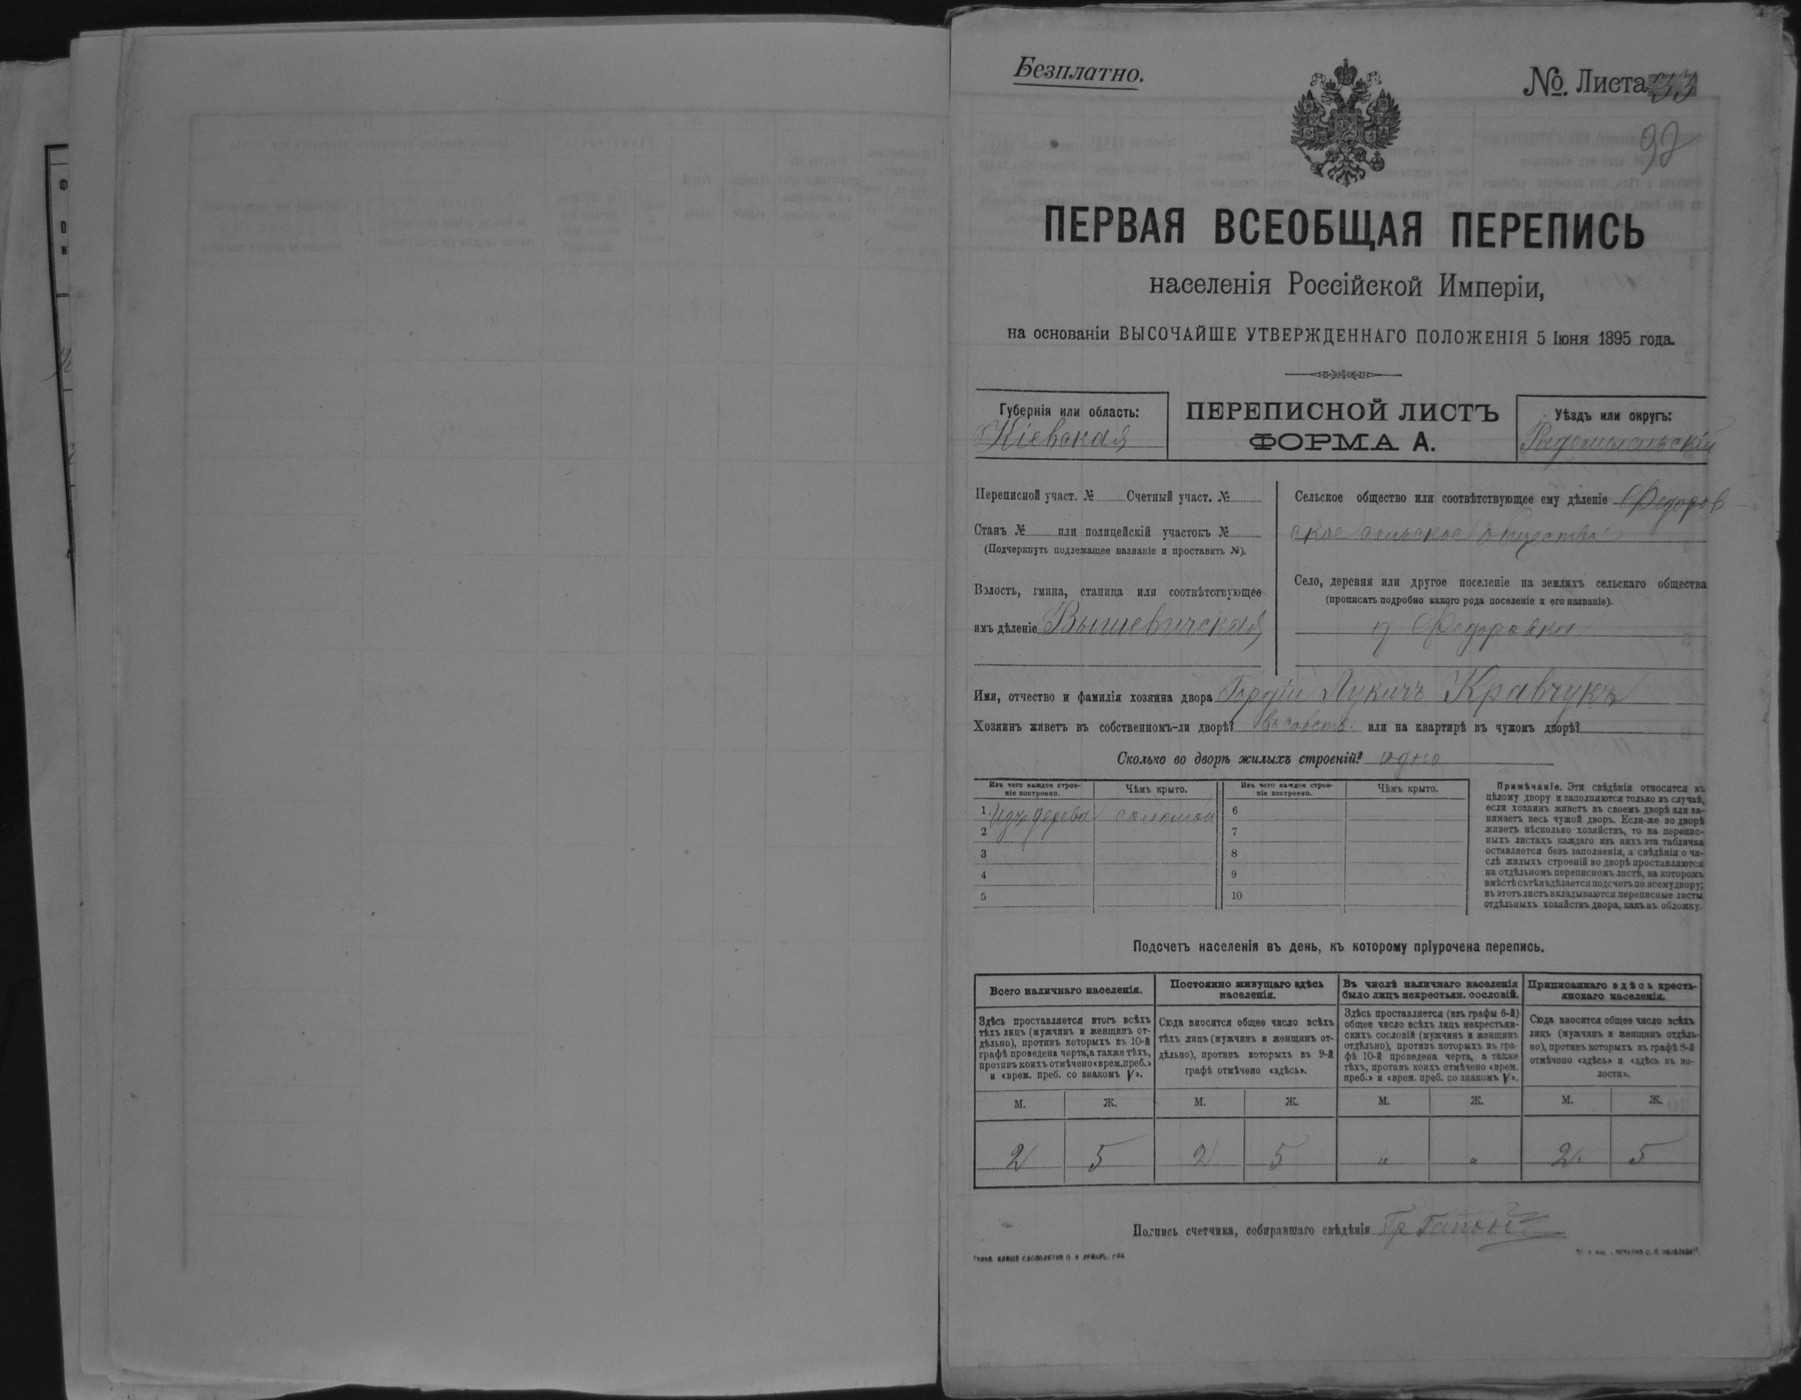 Безплатно.
№. Листа 33
92
ПЕРВАЯ ВСЕОБЩАЯ ПЕРЕПИСЬ
населенія Россійской Имперіи,
на основаніи ВЫСОЧАЙШЕ УТВЕРЖДЕННАГО ПОЛОЖЕНІЯ 5 Іюня 1895 года.
Губернія или область:
Кіевская
ПЕРЕПИСНОЙ ЛИСТЪ
ФОРМА А.
Уѣздъ или округъ:
Радомысльскій
Переписной участ. № Счетный участ. №
Станъ № или полицейскій участокъ №
(Подчеркнуть подлежащее названіе и проставить №).
Волость, гмина, станица или соотвѣтствующее
имъ дѣленіе Вышевичская
Сельское общество или соотвѣтствующее ему дѣленіе Федоров
ское сельское общество
Село, деревня или другое поселеніе на земляхъ сельскаго общества
(прописать подробно какого рода поселеніе и его названіе).
Федоровка
Имя, отчество и фамилія хозяина двора Гордій Лукичъ Кравчукъ
Хозяинъ живетъ въ собственномъ-ли дворѣ? въ собств. или на квартирѣ въ чужомъ дворѣ?
Сколько во дворѣ жилыхъ строеній? одно
Изъ чего каждое строе-
ніе построено.
Чѣмъ крыто.
Изъ чего каждое строе-
ніе построено.
Чѣмъ крыто.
1 Изъ дерева соломой 6
2 7
3 8
4 9
5 10
Примѣчаніе. Эти свѣдѣнія относятся къ
цѣлому двору и заполняются только въ случаѣ,
если хозяинъ живетъ въ своемъ дворѣ или за-
нимаетъ весь чужой дворъ. Если-же во дворѣ
живетъ нѣсколько хозяйствъ, то на перепис-
ныхъ листахъ каждаго изъ нихъ эта табличка
оставляется безъ заполненія, а свѣдѣнія о чи-
слѣ жилыхъ строеній во дворѣ проставляются
на отдѣльномъ переписномъ листѣ, на которомъ
вмѣстѣ съ тѣмъ дѣлается подсчетъ по всему двору;
въ этотъ листъ вкладываются переписные листы
отдѣльныхъ хозяйствъ двора, какъ въ обложку.
Подсчетъ населенія въ день, къ которому пріурочена перепись.
Всего наличнаго населенія.
Здѣсь проставляется итогъ всѣхъ
тѣхъ лицъ (мужчинъ и женщинъ от-
дѣльно), противъ которыхъ въ 10-й
графѣ проведена черта, а также тѣхъ,
противъ коихъ отмѣчено «врем. преб.»
и «врем. преб. со знакомъ V».
Постоянно живущаго здѣсь
населенія.
Сюда вносится общее число всѣхъ
тѣхъ лицъ (мужчинъ и женщинъ от-
дѣльно), противъ которыхъ въ 9-й
графѣ отмѣчено «здѣсь».
Въ числѣ наличнаго населенія
было лицъ некрестьян. сословій.
Здѣсь проставляется (изъ графы 6-й)
общее число всѣхъ лицъ некрестьян-
скихъ сословій (мужчинъ и женщинъ
отдѣльно), противъ которыхъ въ гра-
фѣ 10-й проведена черта, а также
тѣхъ, противъ коихъ отмѣчено «врем.
преб.» и «врем. преб. со знакомъ V».
Приписаннаго здѣсь кресть-
янскаго населенія.
Сюда вносится общее число всѣхъ
лицъ (мужчинъ и женщинъ отдѣль-
но), противъ которыхъ въ графѣ 8-й
отмѣчено «здѣсь» и «здѣсь къ во-
лости».
М. Ж. М. Ж. М. Ж. М. Ж.
2 5 2 5 „ „ 2 5
Подпись счетчика, собиравшаго свѣдѣнія